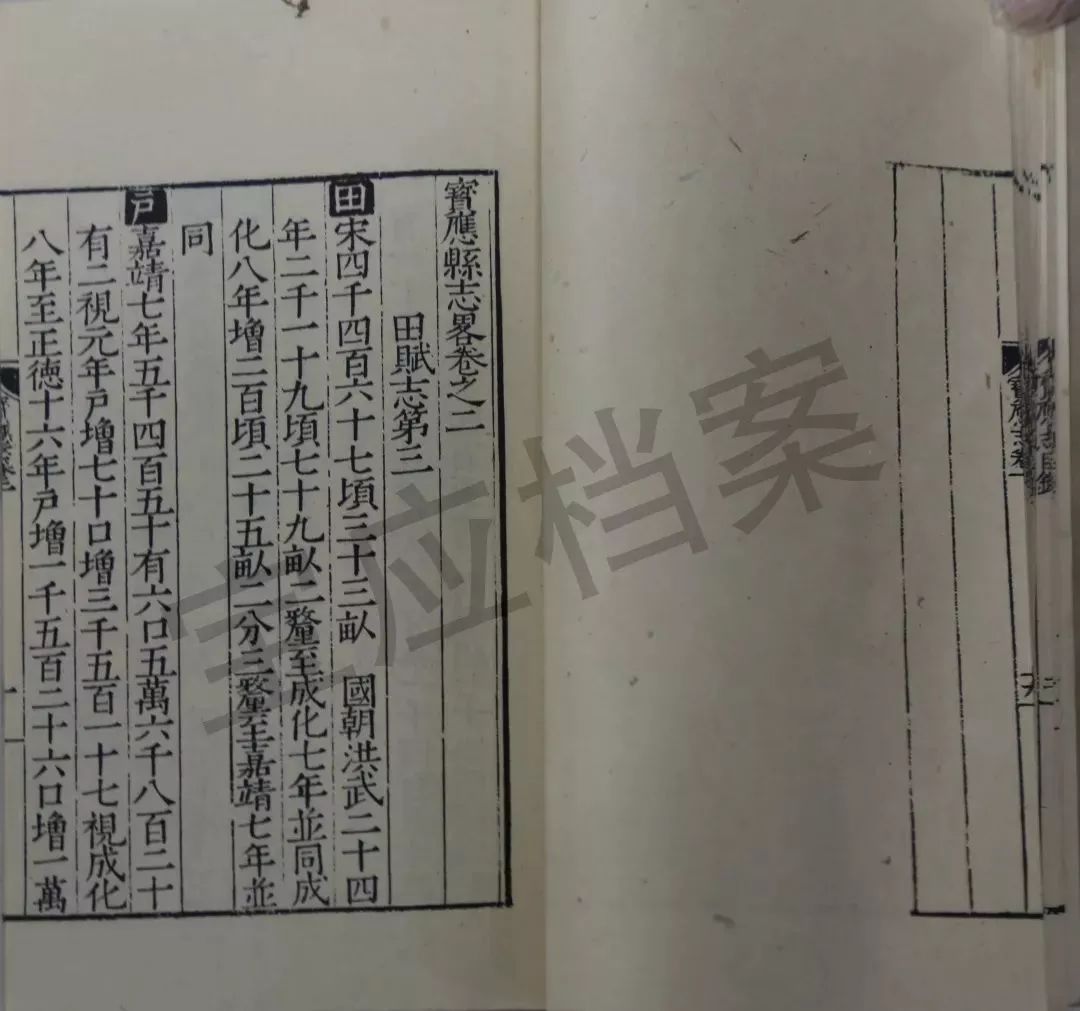 寶應縣志畧卷之二
田賦志第三
田宋四千四百六十七頃三十三畝 國朝洪武二十四
年二千一十九頃七十九畝二釐至成化七年並同成
化八年增二百頃二十五畝二分三釐至嘉靖七年並
同
戶嘉靖七年五千四百五十有六口五萬六千八百二十
有二視元年戶增七十口增三千五百一十七視成化
八年至正德十六年戶增一千五百二十六口增一萬
宝应档案